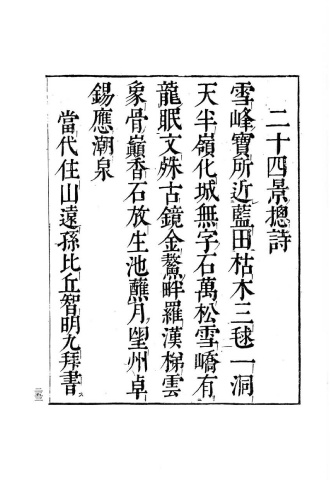 二十四景總詩
雪峰寶所近藍田枯木三毬一洞
天半嶺化城無字石萬松雪嶠有
龍眠文殊古鏡金鰲畔羅漢梯雲
象骨巔香石放生池蘸月望州卓
錫應潮泉
當代住山遠孫比丘智明九拜書